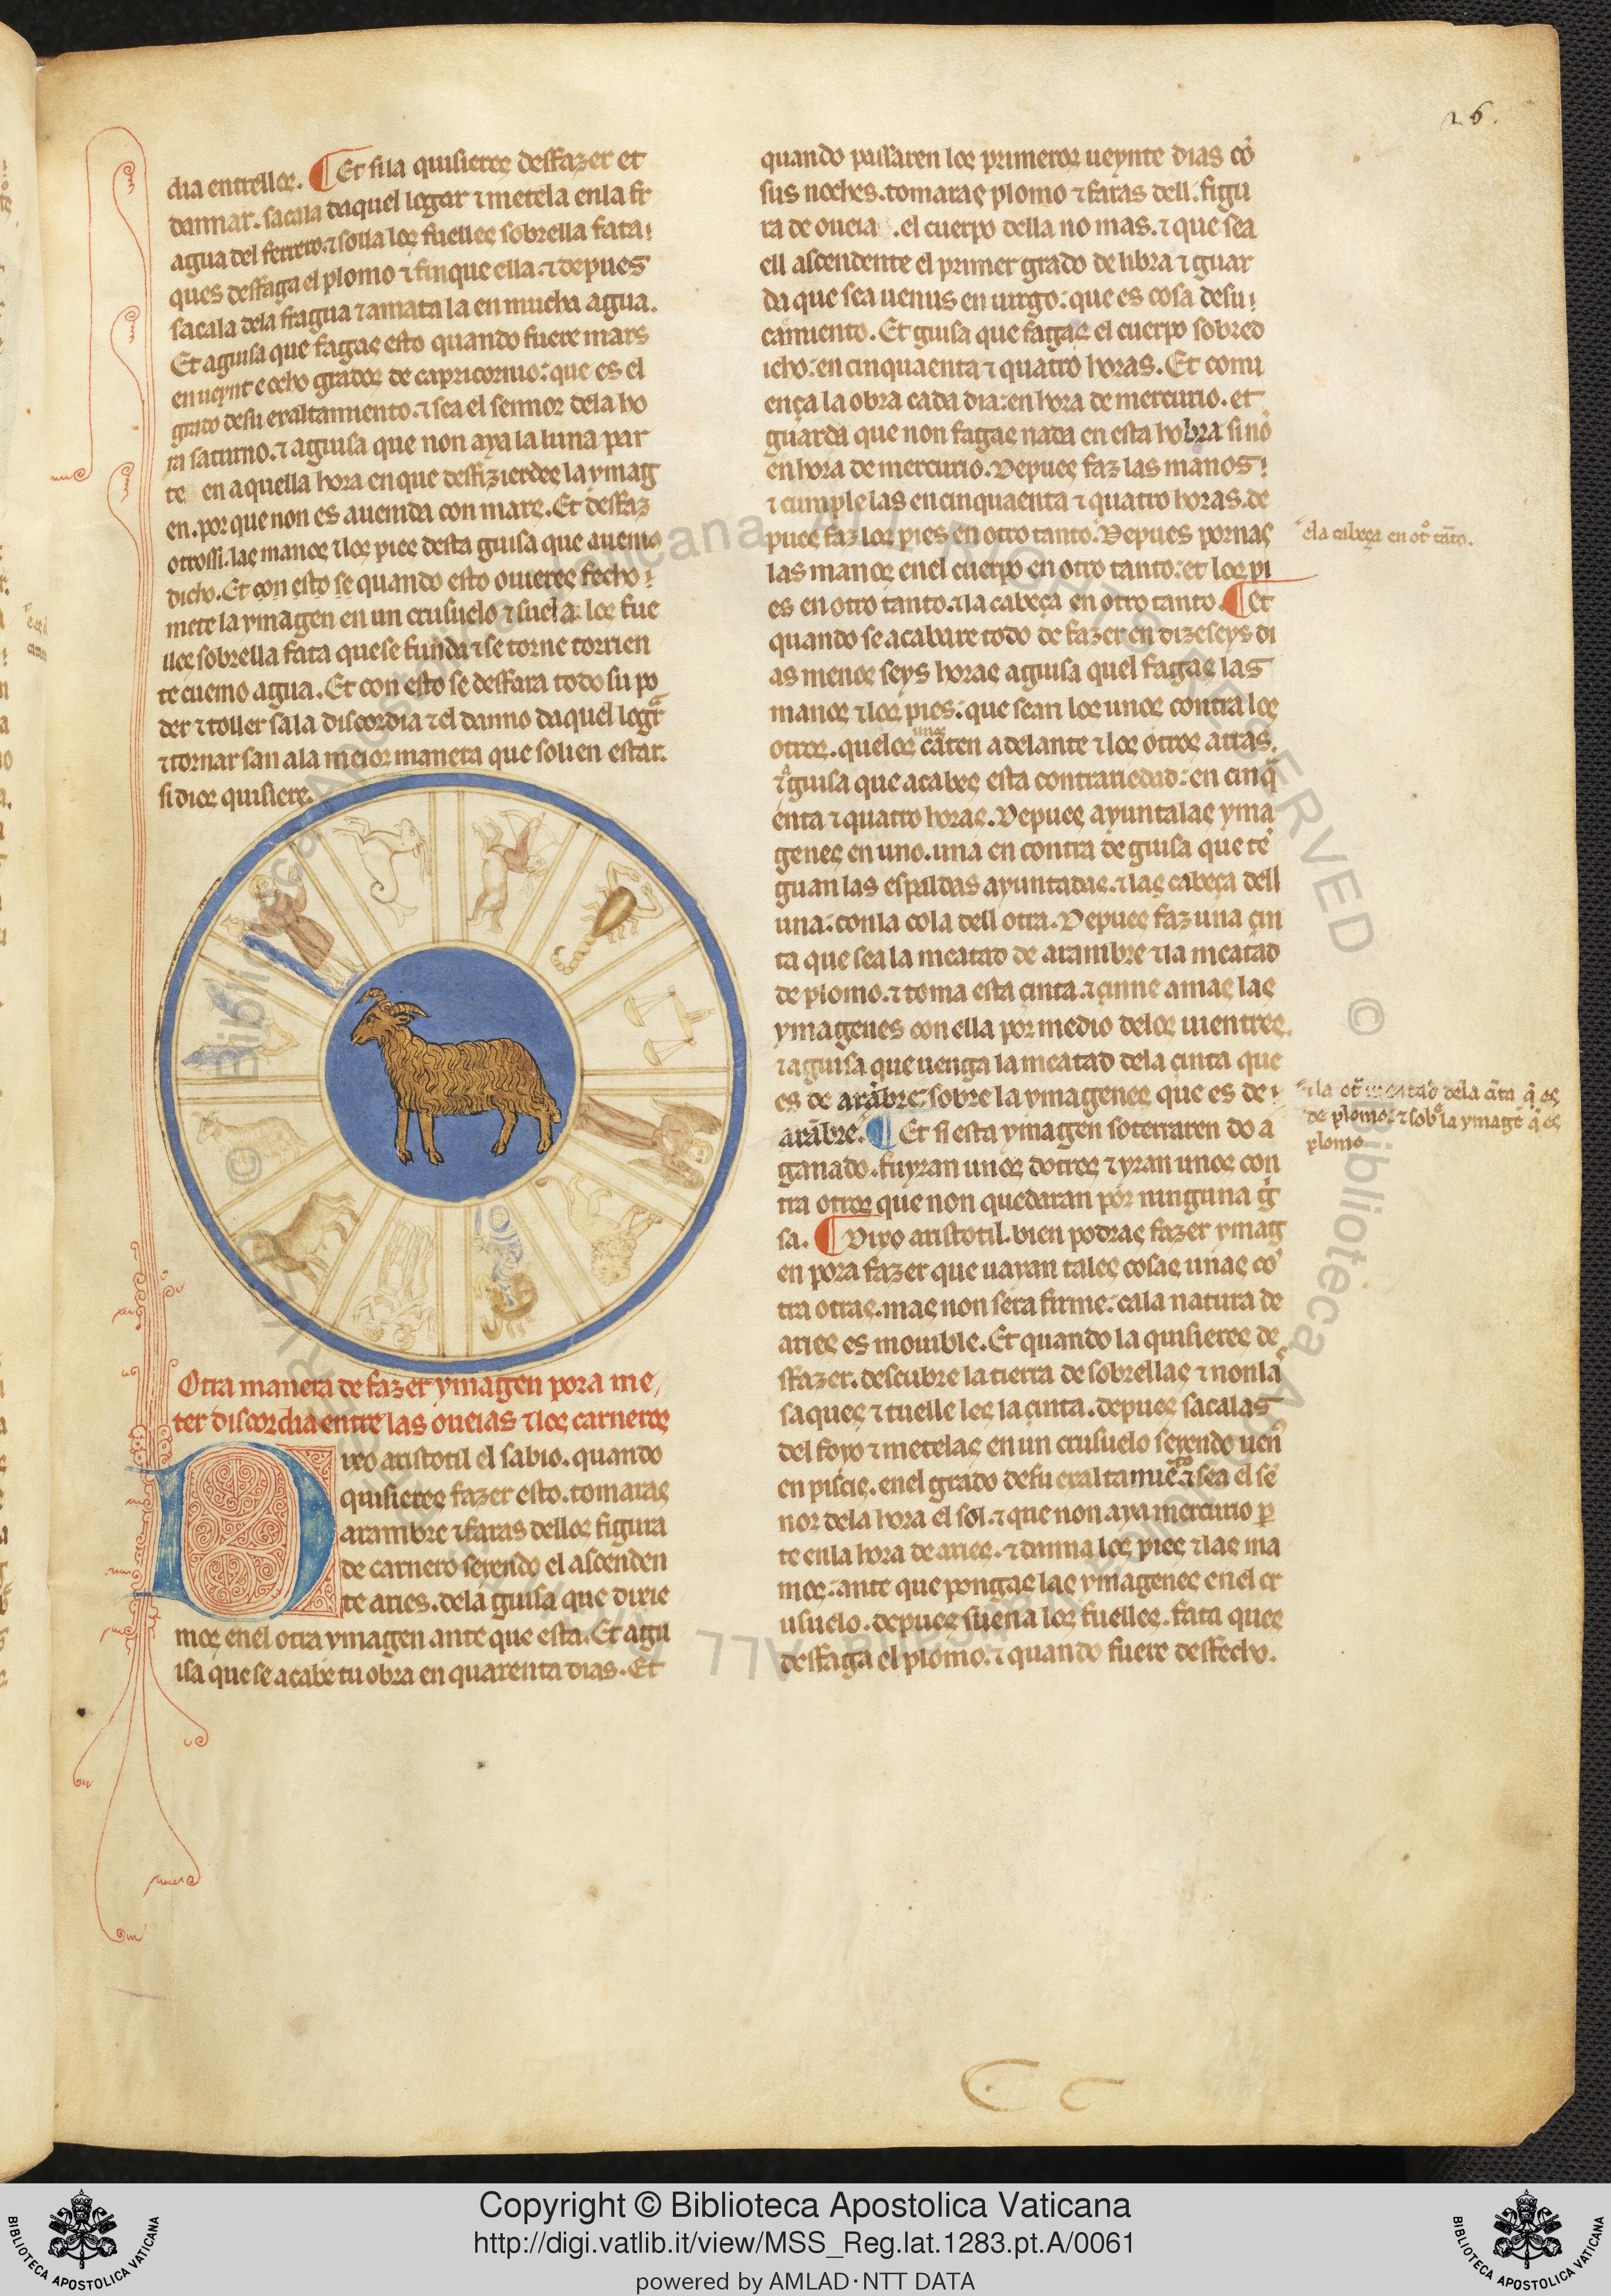 26.
dia entrellos. ¶ Et si la quisieres desfazer et
dannar. sacala daquel logar ⁊ metela en la fr
agua del ferrero. ⁊ solla los fuelles sobrella fata
ques desfaga el plomo ⁊ finque ella. ⁊ depues
sacala dela fragua ⁊ amata la en mucha agua.
Et aguisa que fagas esto quando fuere mars
en ueynt e ocho grados de capricornio: que es el
grado de su exaltamiento. ⁊ sea el sennor dela ho
ra saturno. ⁊ aguisa que non aya la luna par
te en aquella hora en que desfizierdes la ymag
en. por que non es auenida con mars. Et desfaz
otrossi. las manos ⁊ los pies desta guisa que auemos
dicho. Et con esto se quando esto ouieres fecho
mete la ymagen en un crusuelo ⁊ suela los fue
lles sobrella fata que se funda ⁊ se torne corrien
te cuemo agua. Et con esto se desfara todo su po
der ⁊ toller sa la discordia ⁊ el danno daquel logar
⁊ tornar san ala meior manera que solien estar.
si dios quisiere.
Otra manera de fazer ymagen pora me
ter discordia entre las oueias ⁊ los carneros
Dixo aristotil el sabio. quando
quisieres fazer esto. tomaras
arambre ⁊ faras dellos figura
de carnero seyendo el ascenden
te aries. dela guisa que dixie
mos en el otra ymagen ante que esta. Et agu
isa que se acabe tu obra en quarenta dias. Et
quando passaren los primeros ueynte dias cō
sus noches. tomaras plomo ⁊ faras dell. figu
ra de oueia .el cuerpo della no mas. ⁊ que sea
ell ascendente el primer grado de libra ⁊ guar
da que sea uenus en uirgo: que es cosa de su
camiento. Et guisa que fagas el cuerpo sobred
icho: en cinquaenta ⁊ quatro horas. Et comi
ença la obra cada dia: en hora de mercurio. et
guarda que non fagas nada en esta hobra sinō
en hora de mercurio. Depues faz las manos
⁊ cumple las en cinquaenta ⁊ quatro horas. de
pues faz los pies en otro tanto. Depues pornas
las manos en el cuerpo en otro tanto: et los pi
es en otro tanto. ⁊ la cabeça en otro tanto. ¶ Et
quando se acabare todo de fazer en dizeseys di
as menos seys horas aguisa quel fagas las
manos ⁊ los pies: que sean los unos contra los
otros. que los unos caten adelante ⁊ los otros atras.
⁊ guisa que acabes esta contrariedad: en cinqa
enta ⁊ quatro horas. Depues ayunta las yma
genes en uno. una en contra de guisa que tē
guan las espaldas ayuntadas. ⁊ las cabeça dell
una: con la cola dell otra. Depues faz una çin
ta que sea la meatad de arambre ⁊ la meatad
de plomo. ⁊ toma esta çinta. ⁊ çinne amas las
ymagenes con ella por medio delos uientres.
⁊ aguisa que uenga la meatad dela çinta que
es de arābre: sobre la ymagenes que es de
arābre. ¶ Et si esta ymagen soterraren do a
ganado. fuyran unos dotros ⁊ yran unos con
tra otros que non quedaran por ninguna gi
sa. ¶ Dixo aristotil. bien podras fazer ymag
en pora fazer que uayan tales cosas unas cō
tra otras. mas non sera firme: ca la natura de
aries es mouible. Et quando la quisieres de
sfazer. descubre la tierra de sobrellas ⁊ non la
saques ⁊ tuelle les la çinta. depues sacalas
del foyo ⁊ metelas en un crusuelo seyendo uen9
en piscis. en el grado de su exaltamiēto ⁊ sea el sē
nor dela hora el sol. ⁊ que non aya mercurio ꝑ
te en la hora de aries. ⁊ danna los pies ⁊ las ma
nos: ante que pongas las ymagenes en el cr
usuelo. depues suena los fuelles. fata ques
desfaga el plomo. ⁊ quando fuere desfecho.
ela cabeça en otº tāto.
⁊ la otᵃ meatad dela çīta q̄ es
de plomo: ⁊ sobᵉ la ymagē q̄ es
plomo
Copyright © Biblioteca Apostolica Vaticana
http://digi.vatlib.it/view/MSS_Reg.lat.1283.pt.A/0061
powered by AMLAD·NTT DATA
BIBLIOTECA APOSTOLICA VATICANA
BIBLIOTECA APOSTOLICA VATICANA